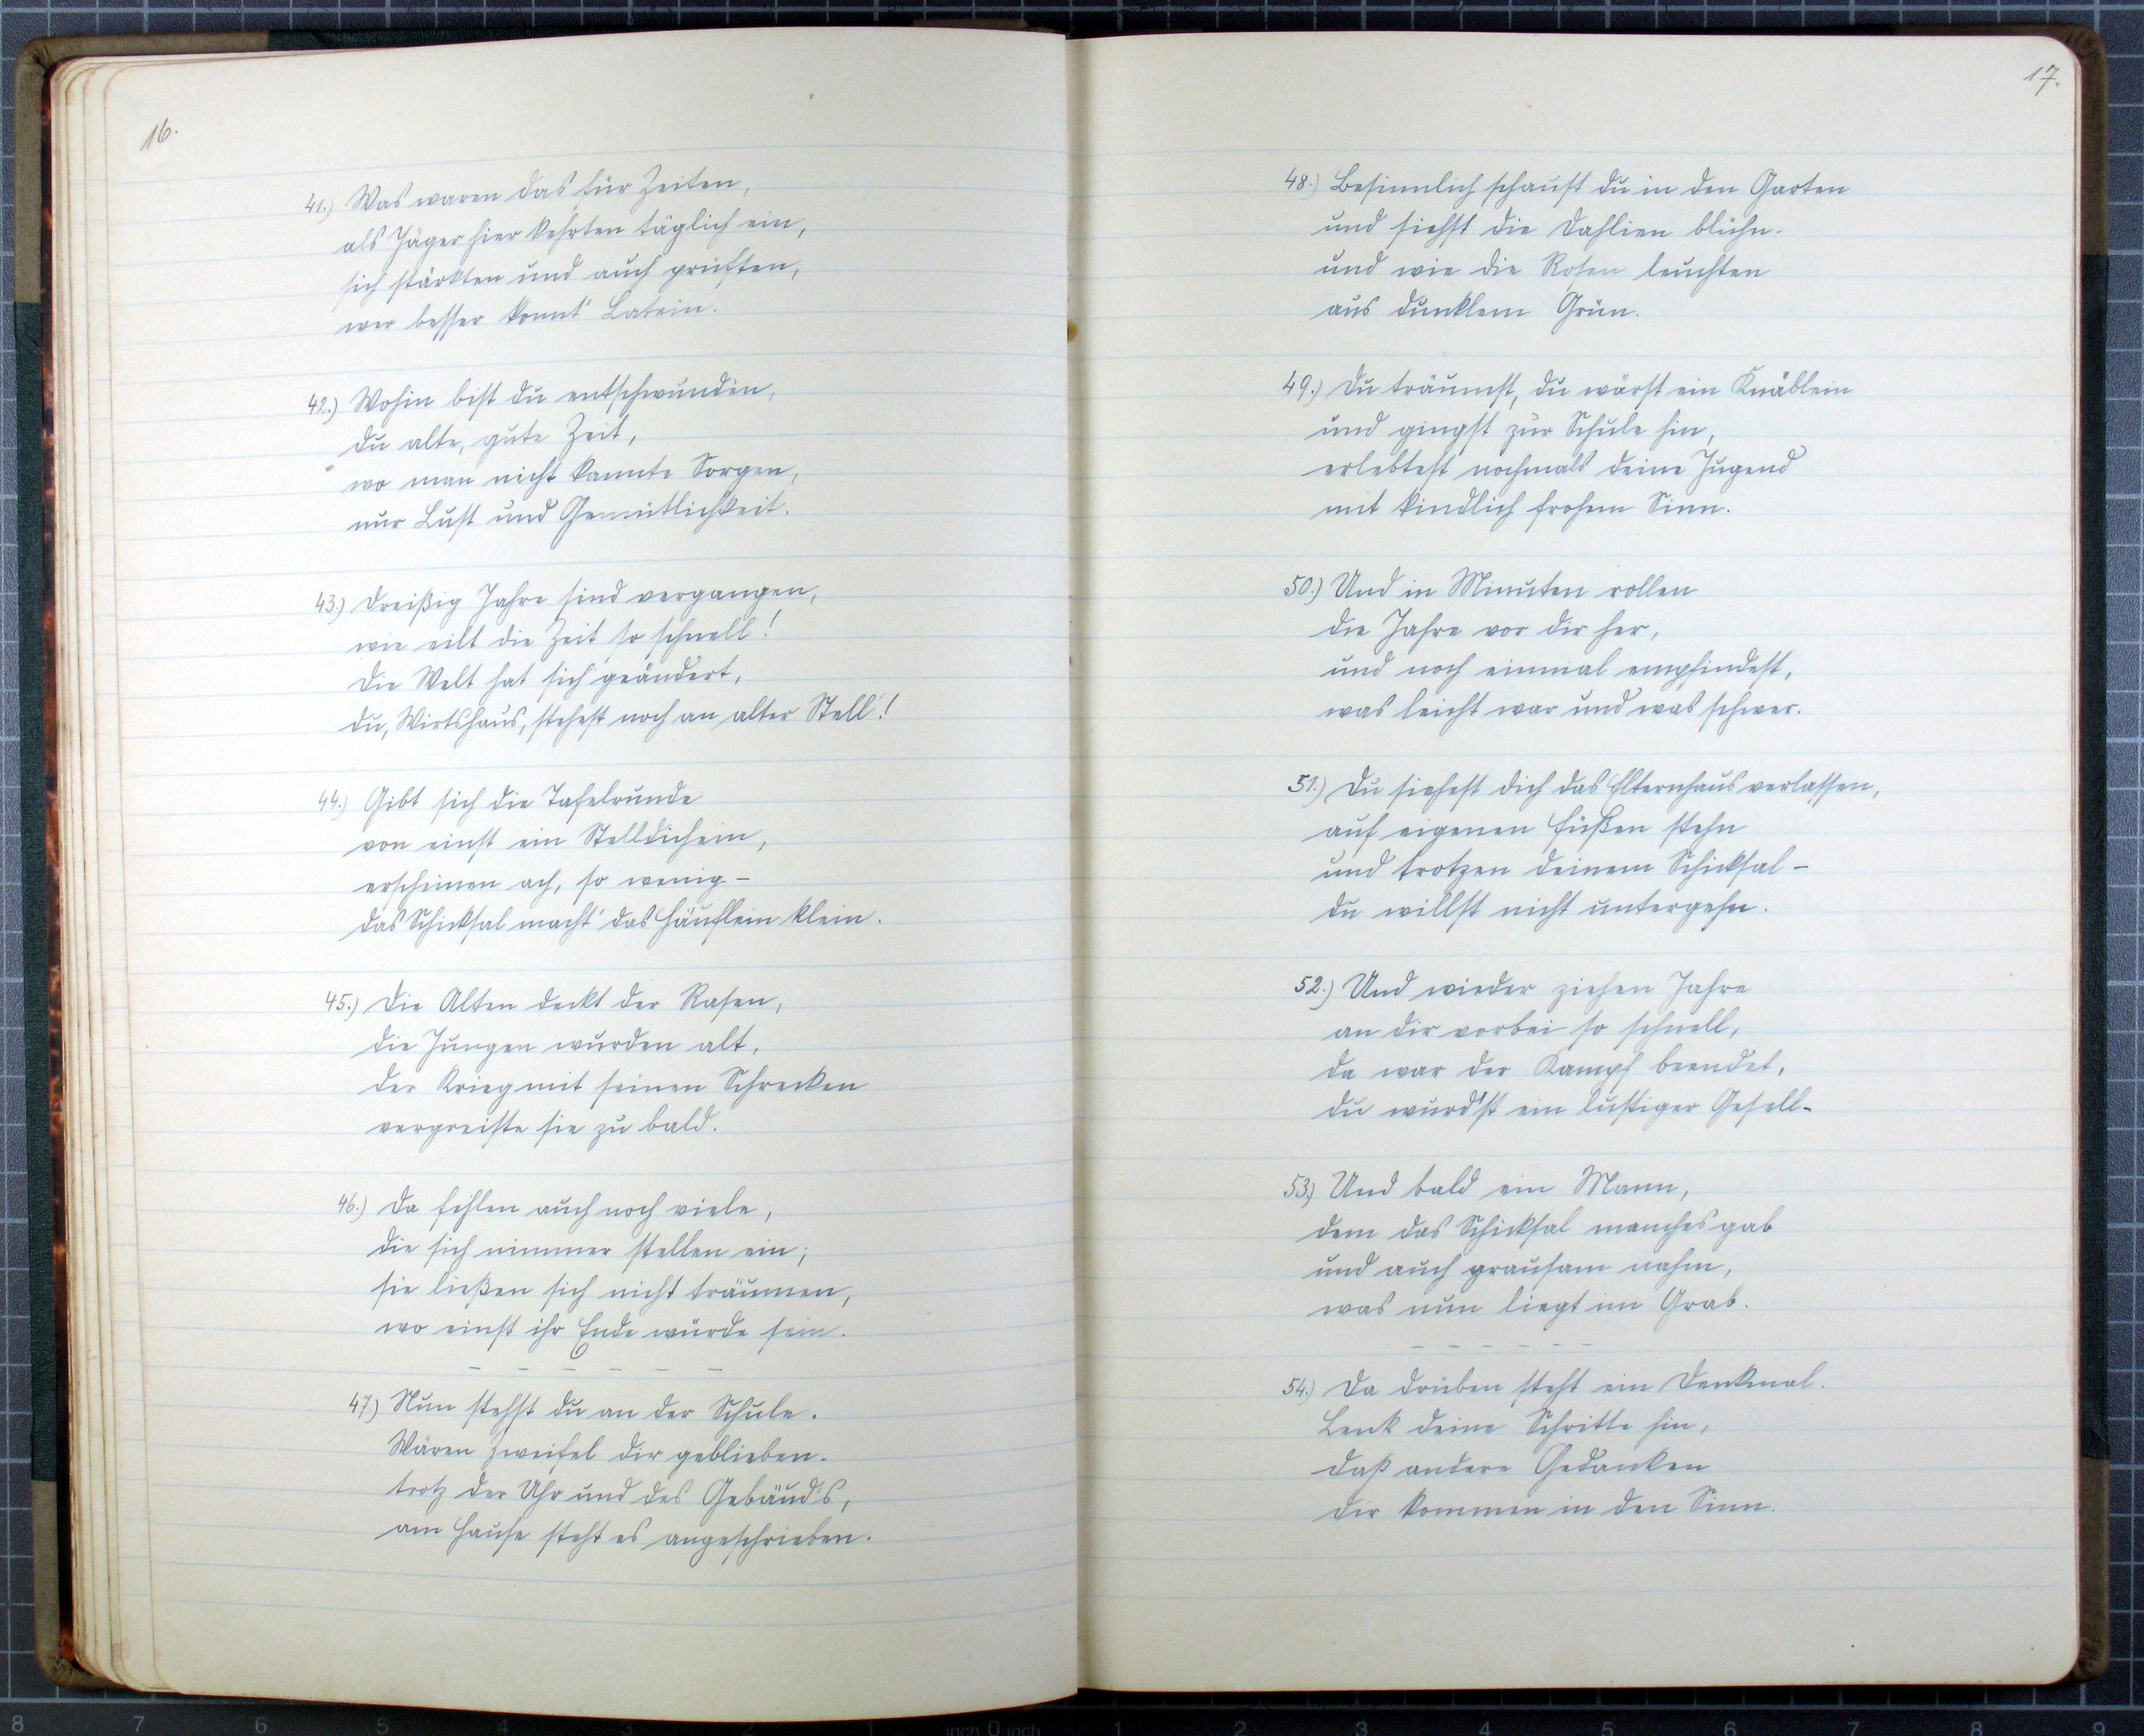 16.
41.) Was waren das für Zeiten,
als Jäger hier kehrten täglich ein,
sich stärkten und auch prüften,
wer besser konnt' Latein.
42.) Wohin bist du entschwunden,
du alte, gute Zeit,
wo man nicht kannte Sorgen,
nur Lust und Gemütlichkeit.
43.) Dreißig Jahre sind vergangen,
wie eilt die Zeit so schnell!
Die Welt hat sich geändert,
du, Wirtshaus, stehest noch an alter Stell'!
44.) Gibt sich die Tafelrunde
von einst ein Stelldichein,
erscheinen ach, so wenig –
das Schicksal macht' das Häuflein klein.
45.) Die Alten deckt der Rasen,
die Jungen wurden alt,
der Krieg mit seinen Schrecken
vergreiste sie zu bald.
46.) Da fehlen auch noch viele,
die sich nimmer stellen ein;
sie ließen sich nicht träumen,
wo einst ihr Ende würde sein.
– – – – – –
47.) Nun stehst du an der Schule.
Wären Zweifel dir geblieben.
trotz der Uhr und des Gebäud's,
am Hause steht es angeschrieben.
17.
48.) Besinnlich schaust du in den Garten
und siehst die Dahlien blühn.
und wie die Rosen leuchten
aus dunklem Grün.
49.) Du träumst, du wärst ein Knäblein
und gingst zur Schule hin,
erlebtest nochmals deine Jugend
mit kindlich frohem Sinn.
50.) Und in Minuten rollen
die Jahre vor dir her,
und noch einmal empfindest,
was leicht war und was schwer.
51.) Du siehest dich das Elternhaus verlassen,
auf eigenen Füßen stehn
und trotzen deinem Schicksal –
du willst nicht untergehn.
52.) Und wieder ziehen Jahre
an dir vorbei so schnell,
da war der Kampf beendet,
du wurd'st ein lustiger Gesell.
53.) Und bald ein Mann,
dem das Schicksal manches gab
und auch grausam nahm,
was nun liegt im Grab.
– – – – – –
54.) Da drüben steht ein Denkmal.
Lenk deine Schritte hin,
daß andere Gedanken
dir kommen in den Sinn.
8 7 6 5 4 3 2 1 inch 0 inch 1 2 3 4 5 6 7 8 9